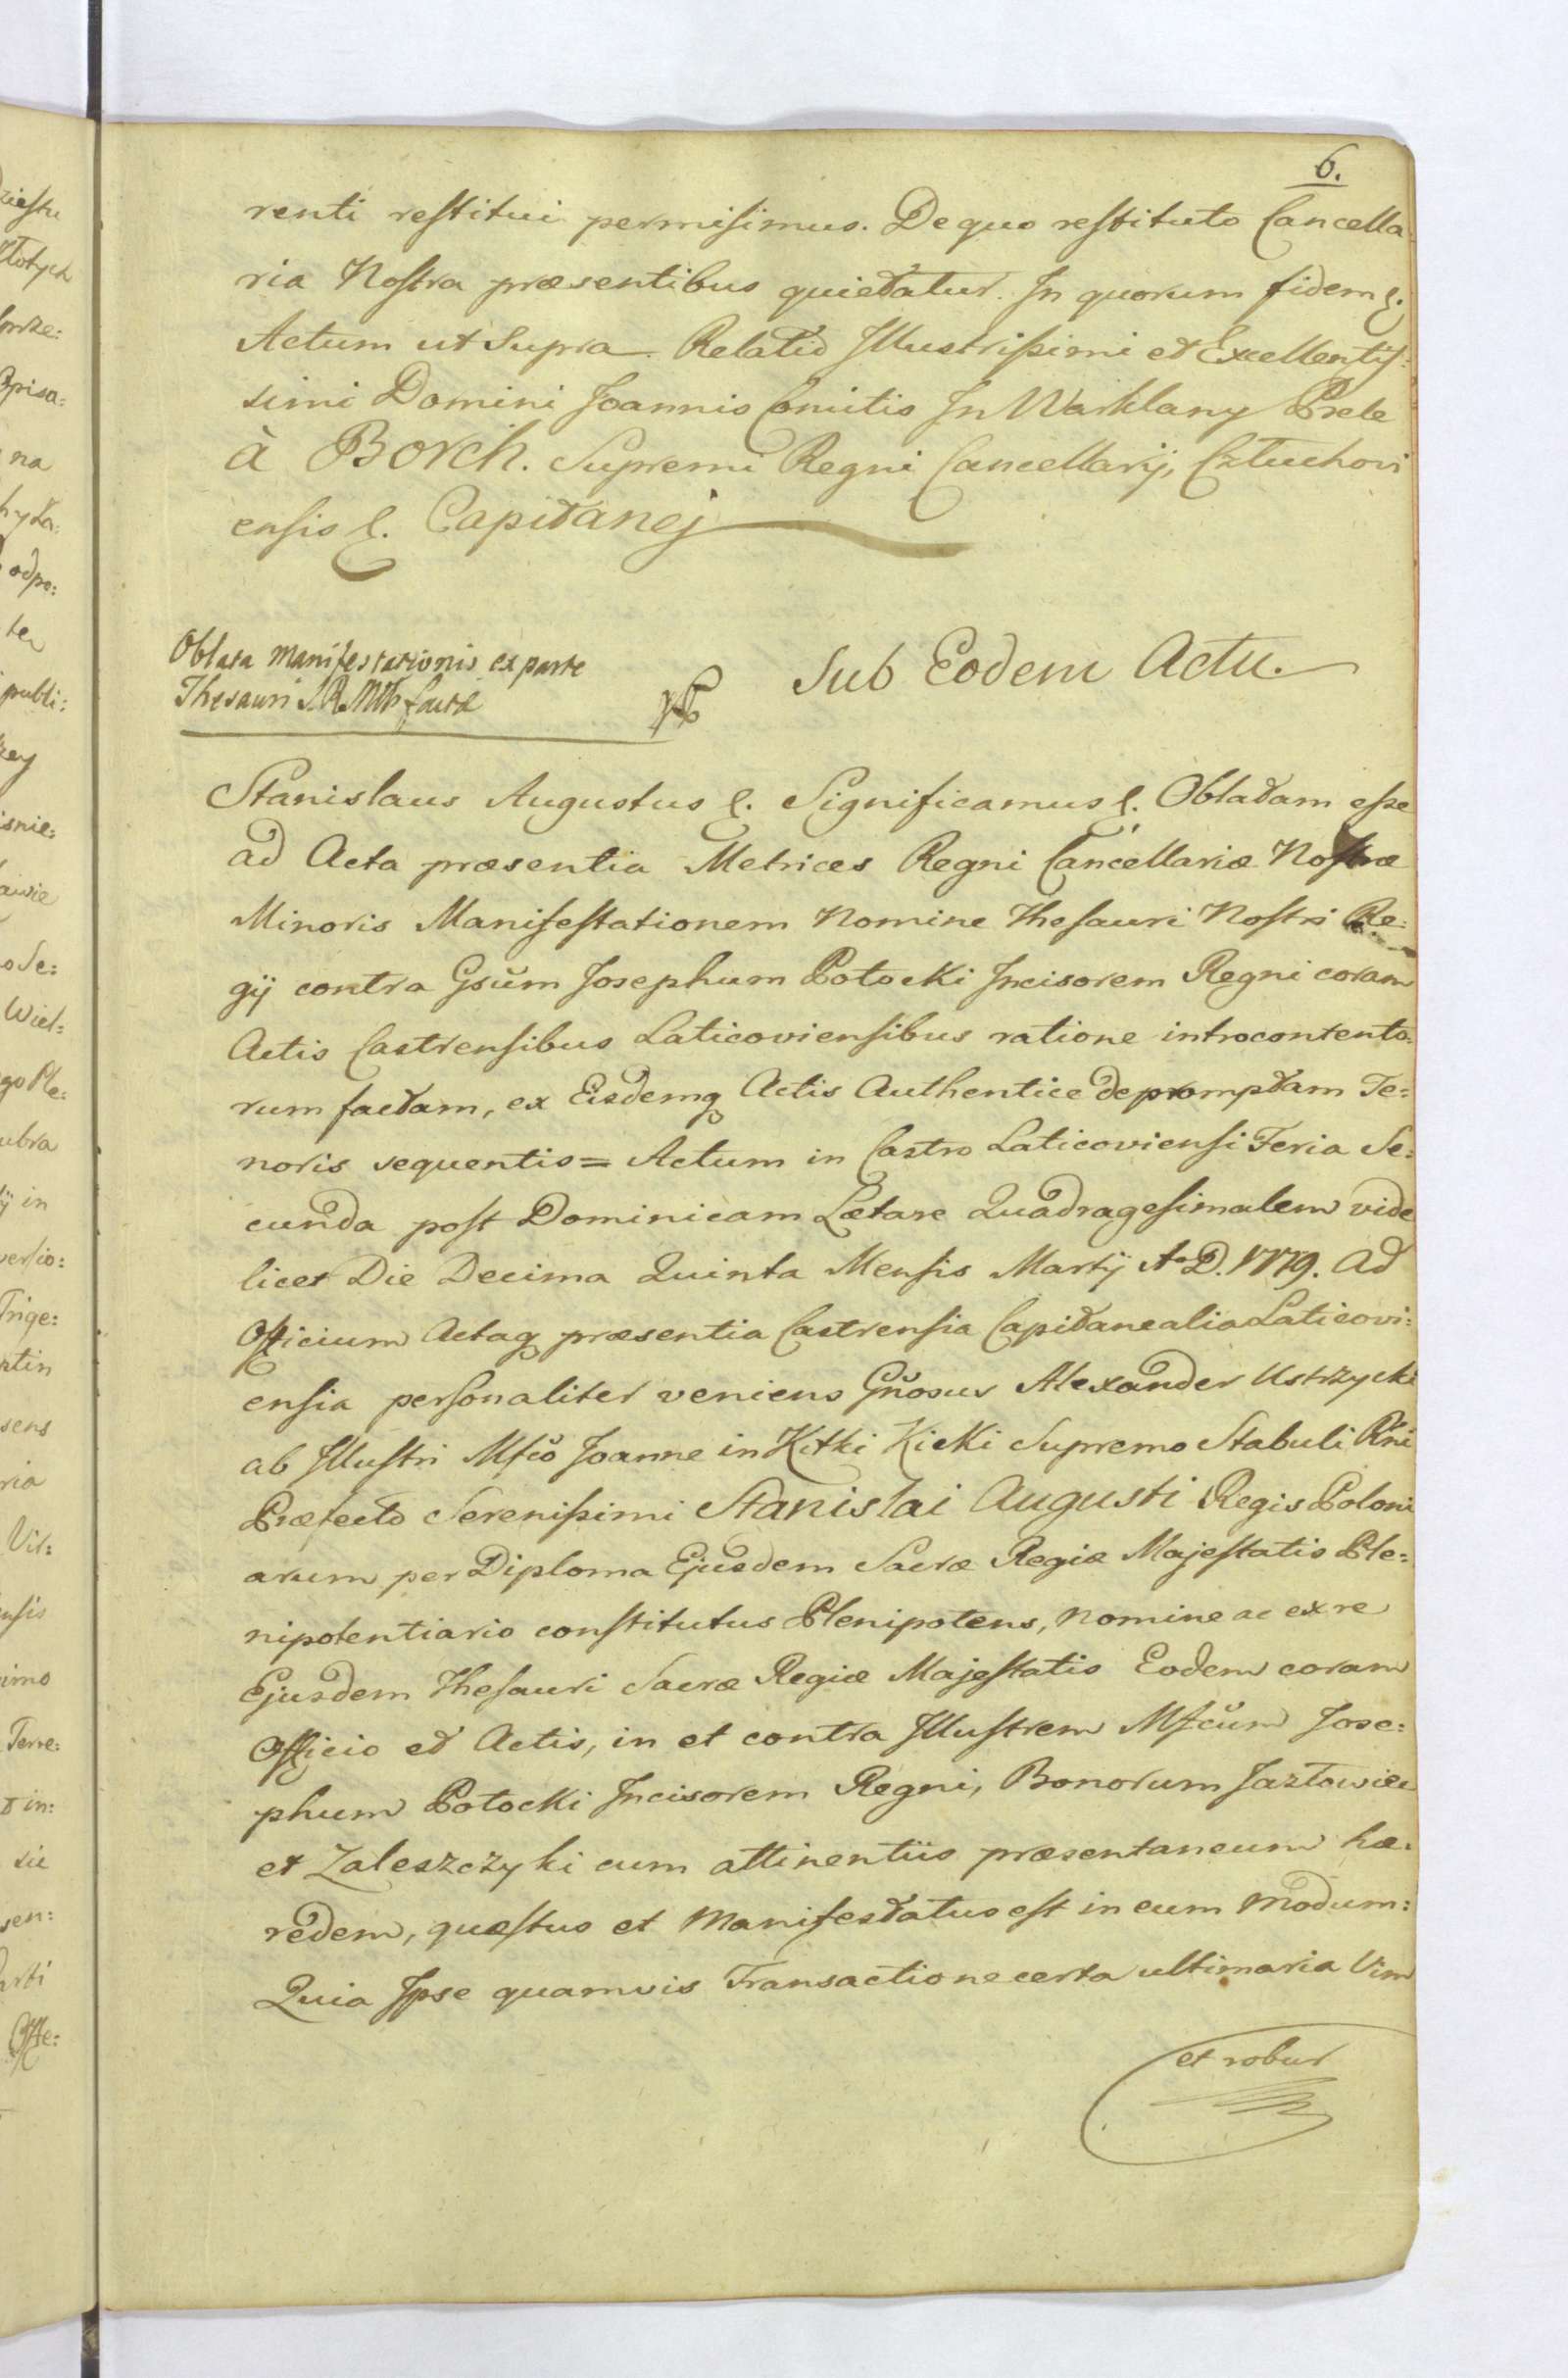 6.
renti restitui permisimus. De quo restituto Cancella
ria Nostra præsentibus quietatur. In quorum fidem &.
Actum ut Supra. Relatio Illustrissimi et Excellentis:
simi Domini Joannis Comitis In Warklany Prele
à Borch. Supremi Regni Cancellarij, Człuchovi
ensis &. Capitanej
Oblata Manifestationis ex parte
Thesauri S.R.Mtis factæ
Sub Eodem Actu.
Stanislaus Augustus &. Significamus &. Oblatam esse
ad Acta præsentia Metrices Regni Cancellariæ Nostræ
Minoris Manifestationem Nomine Thesauri Nostri Re:
gij contra Gsum Josephum Potocki Incisorem Regni coram
Actis Castrensibus Laticoviensibus ratione introcontento:
rum factam, ex Eisdemq Actis Authentice depromptam Te:
noris sequentis = Actum in Castro Laticoviensi Feria Se:
cunda post Dominicam Lætare Quadragesimalem vide
licet Die Decima Quinta Mensis Martij A.D. 1779. Ad
Officium Actaq præsentia Castrensia Capitanealia Laticovi:
ensia personaliter veniens Gnosus Alexander Ustrzycki
ab Illustri Mfco Joanne in Kitki Kicki Supremo Stabuli Rni
Præfecto Serenissimi Stanislai Augusti Regis Poloni
arum per Diploma Ejusdem Sacræ Regiæ Majestatis Ple:
nipotentiario constitutus Plenipotens, nomine ac ex re
Ejusdem Thesauri Sacræ Regiæ Majestatis Eodem coram
Officio et Actis, in et contra Illustrem Mfcum Jose:
phum Potocki Incisorem Regni, Bonorum Jazłowiec
et Zaleszczyki cum attinentiis præsentaneum hæ:
redem, quæstus et Manifestatus est in eum modum:
Quia Ipse quamvis Transactione certa ultimaria Vim
et robur